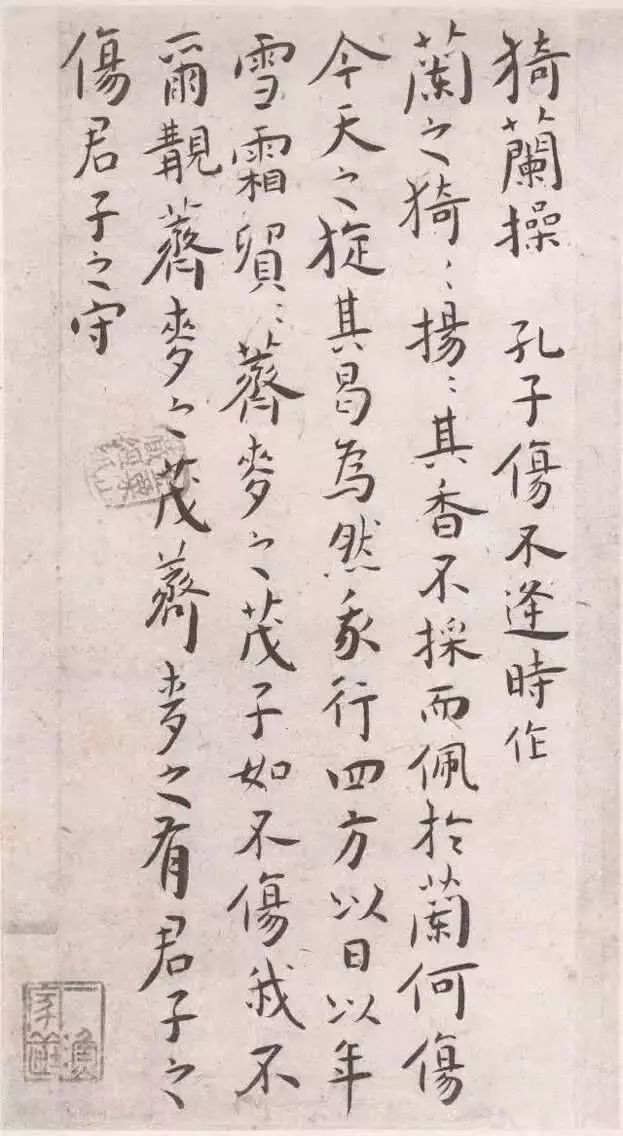 猗蘭操 孔子傷不逢時作
蘭之猗〻揚〻其香不採而佩於蘭何傷
今天之旋其昌為然我行四方以日以年
雪霜貿〻薺麥之茂子如不傷我不
爾覯薺麥之茂薺麥之有君子之
傷君子之守